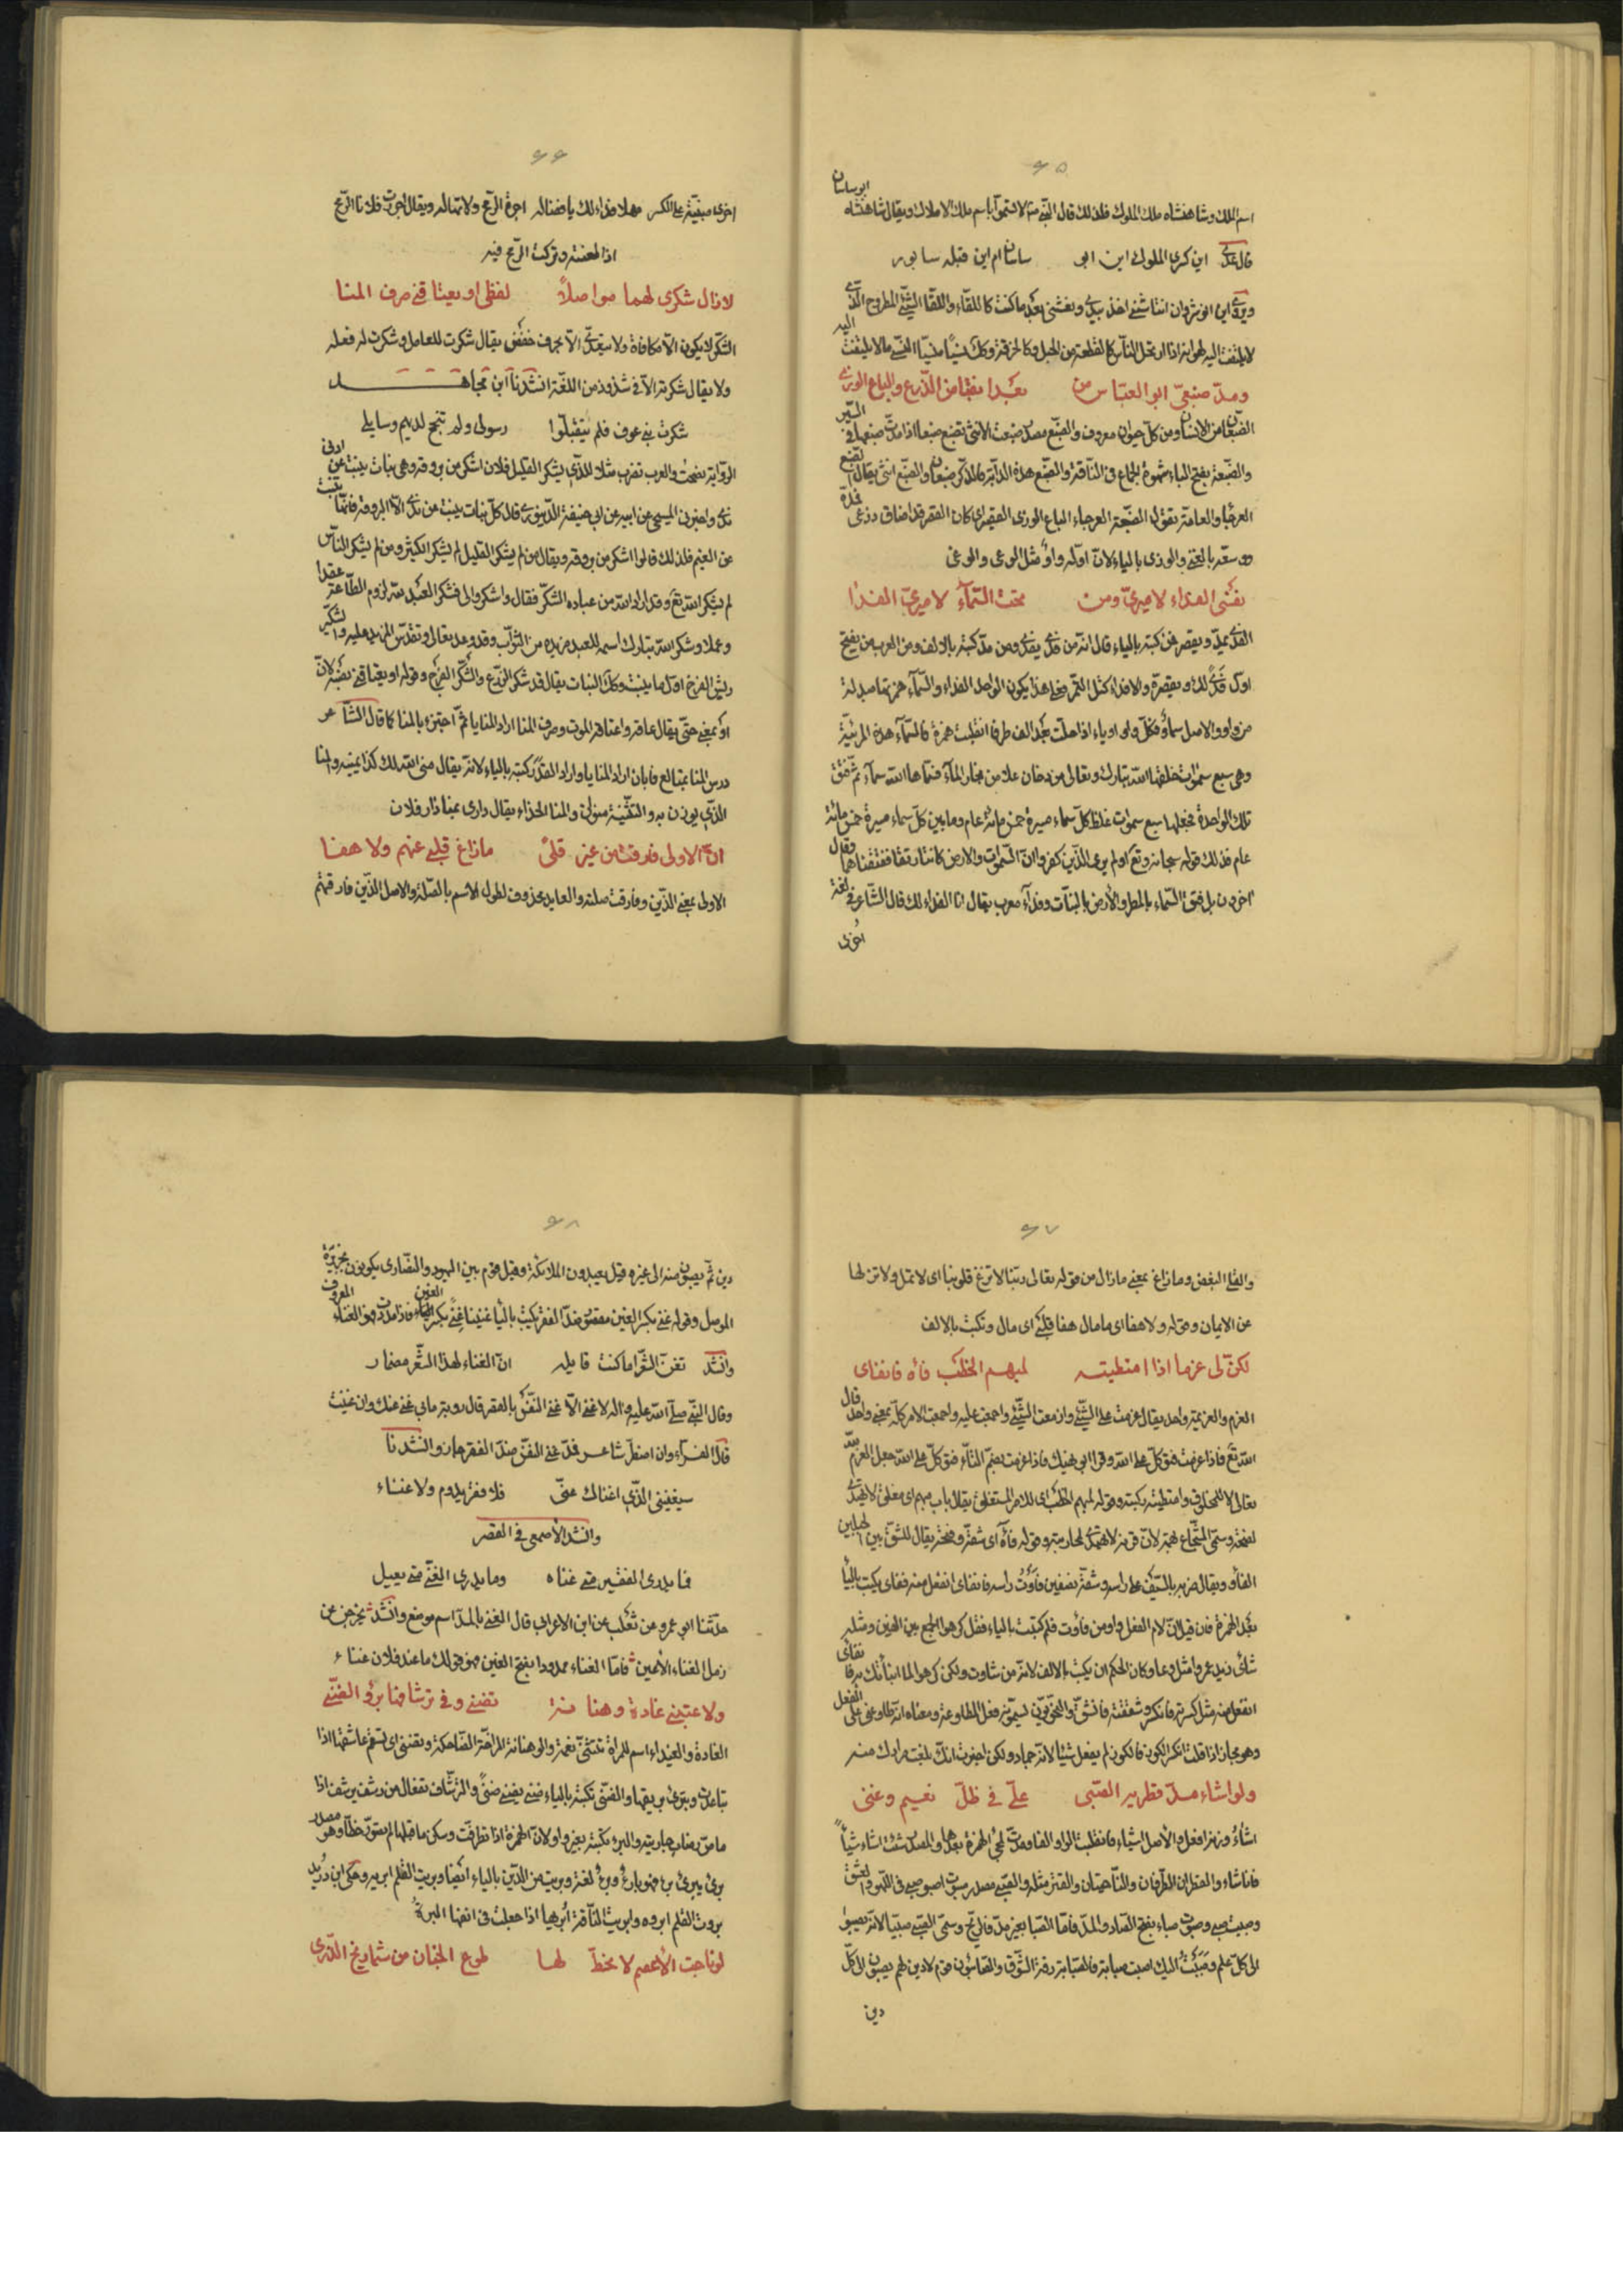 ۶۵
ابو ساسان
اسم الملك وشاهنشاه ملك الملوك فلذلك قال النبي لا تسموا باسم ملك الاملاك ويقال شاهنشاه
قال عدى اين كسرى الملوك اين ابو ساسان ام اين قبله سابور
ويروى اين انوشروان انتاشنى اخذ بيدى ونعشنى بعد ما كنت كاللقاء واللقا الشئ المطروح الذى
لا يلتفت اليه
ومدّ ضبعىّ ابو العباس من بعد انقباض الذرع والباع الوزى
الضبعان من الانسان ومن كل حيوان معروف والضبع مصدر ضبعت الانثى تضبع ضبعا اذا مدت ضبعها فى السير
والضبعة بفتح الباء شهوة الجماع فى الناقة والضبع هذه الدابة فالذكر ضبعان والضبع انثى يقال
العرجاء والعامة يقول الضبعة العرجاء الباع الوزى القصير اى كان الفقر قد اضاق ذرعى
سعة بالغنى والوزى بالياء لان اوله واو مثل الوعى والوغى
نفسى الفداء لاميرىّ ومن تحت السماء لاميرىّ الفدا
الفدى يمد ويقصر فمن كتبه بالياء قال انه من فدى يفدى ومن مد كتبه بالالف ومن العرب من يفتح
اوله فدى لك ويقصره والافداء كتل التمر فعلى هذا يكون الواحد الفداء والسماء همزتها مبدلة
من واو والاصل سماو فكل واو او ياء اذا حلت بعد الف طرفا انقلبت همزة فالسماء هذه المرئية
وهى سبع سموات خلقها الله تبارك وتعالى من دخان علا من بخار الماء فسماها الله سماء ثم فتق
تلك الواحدة فجعلها سبع سموات غلظ كل سماء مسيرة خمس مائة عام وما بين كل سماء مسيرة خمس مائة
عام فذلك قوله سبحانه وتع اولم ير الذين كفروا ان السموات والارض كانتا رتقا ففتقناهما وقال
اخرون بل فتق السماء بالمطر والارض بالنبات وفداء معرب يقال انا الفداء لك قال الشاعر فى لغة
اخرى
۶۶
اخرى مبنية على الكسر مهلا فداء لك يا فضاله اجره الرمح ولا تهاله ويقال اجررت فلانا الرمح
اذا طعنته وتركت الرمح فيه
لا زال شكرى لهما مواصلاً لفظى او يعتاقنى صرف المنا
الشكر لا يكون الا مكافاة ولا يتعدى الا بحرف خفض يقال شكرت للعامل وشكرت له فعله
ولا يقال شكرته الا فى شذوذ من اللغة انشدنا ابن مجاهد
شكرت بنى عوف فلم يتقبلوا رسولى ولم تنجح لديهم وسايلى
الرواية نصحت والعرب تضرب مثلا للذى يشكر القليل فلان اشكر من بروقة وهى نبات ينبت عن ادنى
ندى واخبرنى المسيحى عن ابيه عن ابى حنيفة الدينورى قال كل نبات ينبت من ندى الا البروقة فانها تنبت
من الغيم فلذلك قالوا اشكر من بروقة ويقال من لم يشكر القليل لم يشكر الكثير ومن لم يشكر الناس
لم يشكر الله تع وقد اراد الله من عباده الشكر فقال واشكروا لى فشكر العبد لله لزوم الطاعة عقدا
وعملا وشكر الله تبارك اسمه للعبد مزيده من الثواب وقد وعد تعالى وتقدس المزيد عليه والشكير
ريش الفرخ اول ما ينبت وكذلك النبات يقال قد شكر الزرع والشكر الفرج وقوله او يعتاقنى نصبه لان
او بمعنى حتى يقال عاقه واعتاقه الموت وصرف المنا اراد المنايا ثم اجتزء بالمنا كما قال الشاعر
درس المنا بمتالع فابان اراد المنايا واراد القدر كتبه بالياء لانه يقال منى الله لك كذا يمنيه والمنا
الذى يوزن به والتثنية منوان والمنا الحذاء يقال دارى بمنا دار فلان
ان الاولى فارقت من غير قلى ما زاغ قلبى عنهم ولا هفا
الاولى بمعنى الذين وفارقت صلته والعايد محذوف لطول الاسم بالصلة والاصل الذين فارقتهم
۶۷
والقلى البغض وما زاغ بمعنى ما زال من قوله تعالى ربنا لا تزغ قلوبنا اى لا تمل ولا تزلها
عن الايمان وقوله ولا هفا اى ما مال هفا قلبى اى مال وتكتب بالالف
لكنّ لى عزما اذا امتطيته لمبهم الخطب فاه فانفاى
العزم والعزيمة واحد يقال عزمت على الشئ وازمعت الشئ واجمعت عليه واجمعت الامر كله بمعنى واحد قال
الله تع فاذا عزمت فتوكل على الله وقرا ابو نهيك فاذا عزمت بضم التاء فتوكل على الله جعل العزم لله
تعالى لا للمخلوق وامتطيته ركبته وقوله لمبهم الخطب اى للامر المستغلق يقال باب مبهم اى مغلق لا يهتدى
لفتحه وسمى الشجاع بهمة لان قرنه لا يهتدى لمحاربته وقوله فآه اى شقه وفتحه يقال للشق بين الجبلين
الفاو ويقال ضربه بالسيف على راسه وشقه نصفين فأوت راسه فانفاى انفعل منه ففاى يكتب بالياء
بعد الهمزة فان قيل ان لام الفعل واو من فاوت فلم كتبت بالياء فقل كرهوا الجمع بين الفين ومثله
شأى زيد عمروا مثل دعا وكان الحكم ان يكتب بالالف لانه من شاوت ولكن كرهوا لما انبأتك به فانفاى
انفعل منه مثل كسرته فانكسر وشققته فانشق والنحويون يسمونه فعل المطاوعة ومعناه انه طاوعنى على الفعل
وهو مجاز اذا قلت انكسر الكوز فالكوز لم يفعل شيئا لانه جماد ولكن اخبرت انك بلغت مرادك منه
ولو اشاء مدّ قطريه الصبى علىّ فى ظلّ نعيم وغنى
اشاء وزنه افعل والاصل اشياء فانقلبت الواو الفا ومدت لمجئ الهمزة بعدها والمصدر شئت اشاء شياً
فانا شاء والقطران الطرفان والناحيتان والقتر مثله والصبى مصدر صبوت اصبو صبى فى اللهو والعشق
وصبيت صبى وصبوت صباء بفتح الصاد والمد فاما الصبا بغير مد فالريح وسمى الصبى صبيا لانه يصبو
الى كل علم وصببت اليك اصبب صبابة فالصبابة رقة الشوق والصابئون قوم لا دين لهم يصبون الى كل
دين
۶۸
دين ثم يصبون منه الى غيره وقيل يعبدون الملائكة وقيل قوم بين اليهود والنصارى يكونون بجزيرة
الموصل وقوله غنى بكسر الغين مقصور ضد الفقر يكتب بالياء غنينا غنى بكسر الغين فاذا مددت فهو الغناء المعروف
وانشد تغن بالشعر اما كنت قايله ان الغناء لهذا الشعر مضمار
وقال النبى صلى الله عليه واله لا غنى الا غنى النفس بالفقر قال روبة ما بى غنى عنك وان غنيت
قال الفراء وان اضطر شاعر فمد غنى النفس ضد الفقر جاز وانشدنا
سيغنينى الذى اغناك عنى فلا فقر يدوم ولا غناء
وانشد الاصمعى فى القصر
فما يدرى الفقير متى غناه وما يدرى الغنى متى يعيل
حدثنا ابو عمرو عن ثعلب عن ابن الاعرابى قال الغنى بالمد اسم موضع وانشد يخرجن من
رمل الغناء الايمن فاما الغناء ممدودا بفتح الغين فهو قولك ما عند فلان غناء
ولاعبتنى غادة وهنانة تضنى وفى ترشافها برؤ الضنى
الغادة والغيداء اسم للمراة تتثنى نعمة والوهنانة المزاحة الضاحكة وتضنى اى تسقم عاشقها اذا
تباعدت وتبرى بريقها والضنى تكتبه بالياء ضنى يضنى ضنىً والترشاف تفعال من رشف يرشف اذا
مص رضاب جاريته والبرء تكتبه بغير واو لان الهمزة اذا تطرفت وسكن ما قبلها لم تصور خطا وهو مصدر
برئ يبرئ برءا فهو بارئ وبرء لغة وبريت من الدين بالياء ايضا وبريت القلم ابريه وحكى ابن دريد
بروت القلم ابروه وابريت الناقة ابريها اذا جعلت فى انفها البرة
لو ناجت الاعصم لانحطّ لها طوع الجنان من شماريخ الذرى